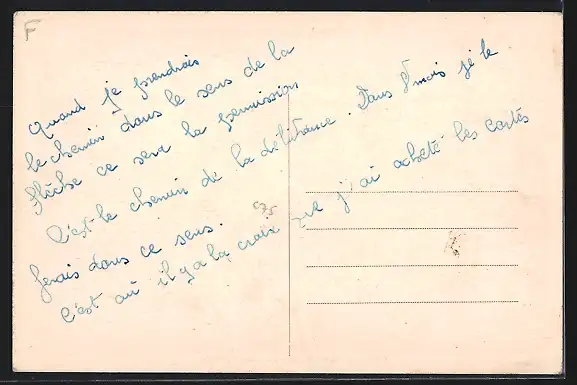 F
Quand je prendrais
le chemin dans le sens de la
flèche ce sera la permission
C'est le chemin de la délivrance. Dans 8 mois je le
ferais dans ce sens.
C'est où il y a la croix que j'ai acheté les cartes
C75